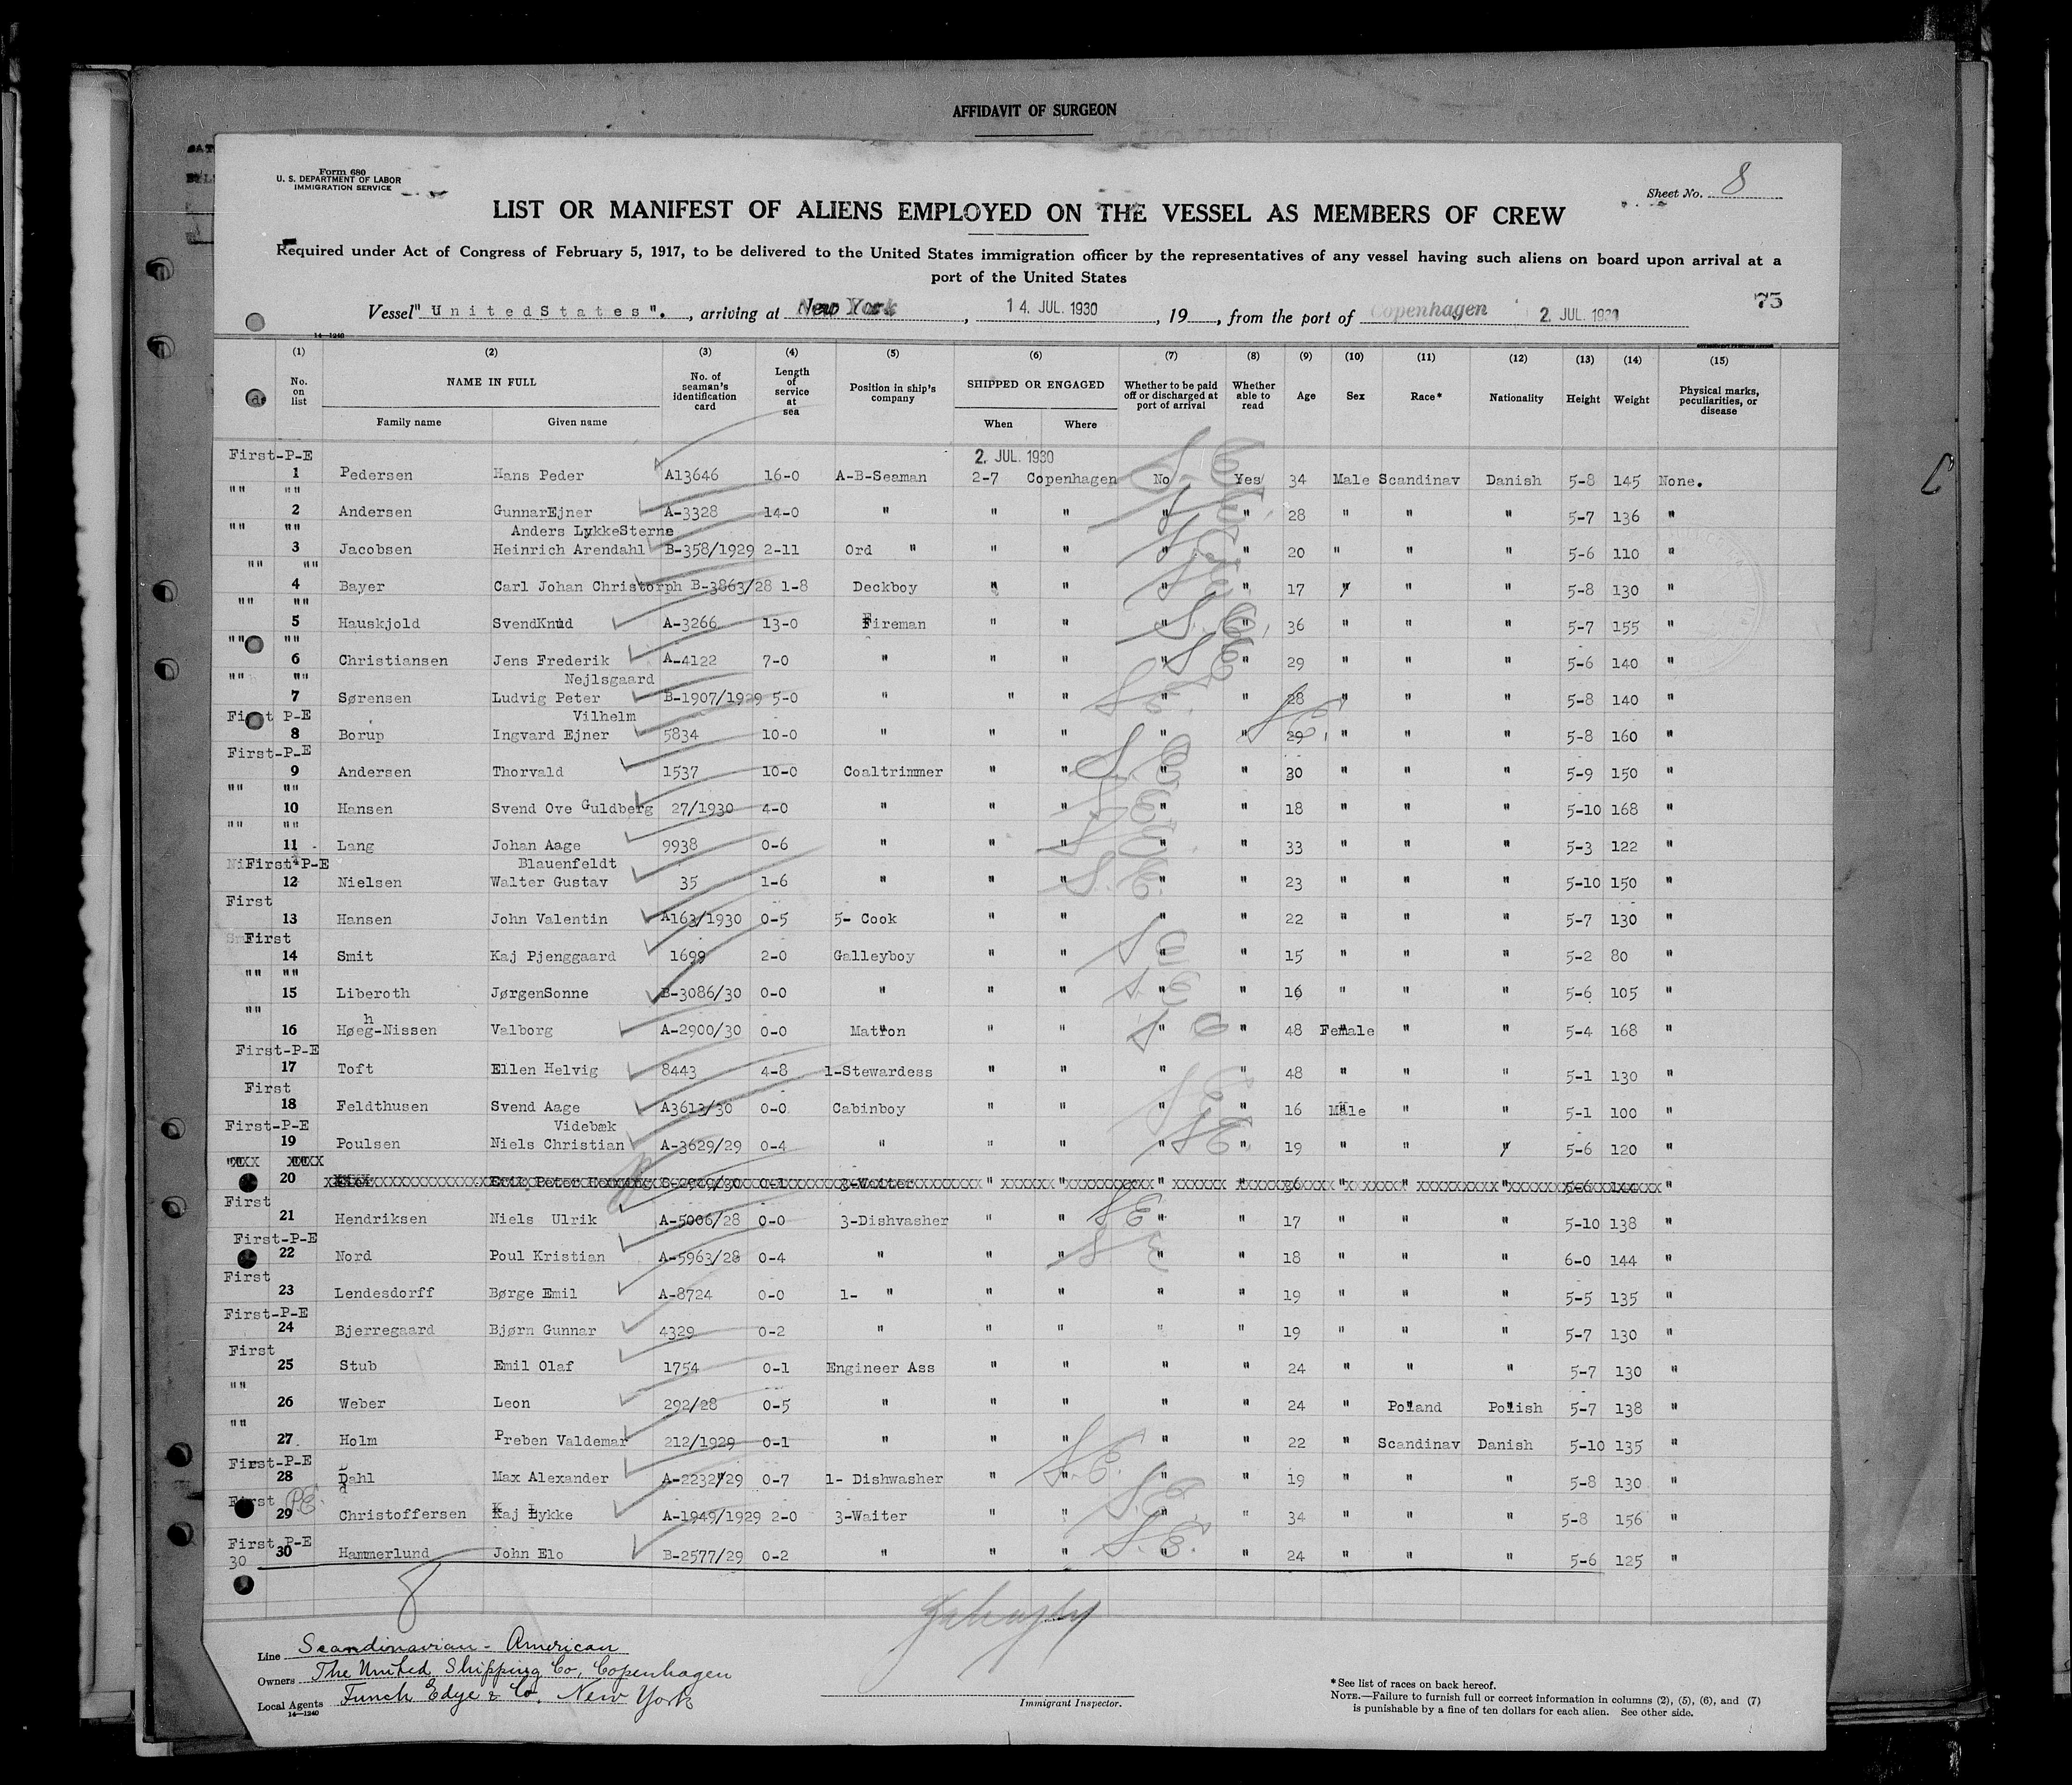 AFFIDAVIT OF SURGEON
Form 680
U. S. DEPARTMENT OF LABOR
IMMIGRATION SERVICE
Sheet No. 8
LIST OR MANIFEST OF ALIENS EMPLOYED ON THE VESSEL AS MEMBERS OF CREW
Required under Act of Congress of February 5, 1917, to be delivered to the United States immigration officer by the representatives of any vessel having such aliens on board upon arrival at a
port of the United States
75
Vessel "United States"., arriving at New York, 14. JUL. 1930, 19, from the port of Copenhagen 2. JUL. 1930
14—1240
(1) (2) (3) (4) (5) (6) (7) (8) (9) (10) (11) (12) (13) (14) (15)
No. on list NAME IN FULL Family name Given name No. of seaman's identification card Length of service at sea Position in ship's company SHIPPED OR ENGAGED When Where Whether to be paid off or discharged at port of arrival Whether able to read Age Sex Race* Nationality Height Weight Physical marks, peculiarities, or disease
First-P-E 2. JUL. 1930
1 Pedersen Hans Peder A13646 16-0 A-B-Seaman 2-7 Copenhagen No Yes 34 Male Scandinav Danish 5-8 145 None.
"" ""
2 Andersen GunnarEjner A-3328 14-0 " " " " " 28 " " " 5-7 136 "
"" "" Anders LykkeSterne
3 Jacobsen Heinrich Arendahl B-358/1929 2-11 Ord " " " " " 20 " " " 5-6 110 "
"" ""
4 Bayer Carl Johan Christorph B-3863/28 1-8 Deckboy " " " " 17 " " " 5-8 130 "
"" ""
5 Hauskjold SvendKnud A-3266 13-0 Fireman " " " " 36 " " " 5-7 155 "
"" ""
6 Christiansen Jens Frederik A-4122 7-0 " " " " " 29 " " " 5-6 140 "
"" "" Nejlsgaard
7 Sørensen Ludvig Peter B-1907/1929 5-0 " " " " " 28 " " " 5-8 140 "
First P-E Vilhelm
8 Borup Ingvard Ejner 5834 10-0 " " " " " 29 " " " 5-8 160 "
First-P-E
9 Andersen Thorvald 1537 10-0 Coaltrimmer " " " " 30 " " " 5-9 150 "
"" ""
10 Hansen Svend Ove Guldberg 27/1930 4-0 " " " " " 18 " " " 5-10 168 "
"" ""
11 Lang Johan Aage 9938 0-6 " " " " " 33 " " " 5-3 122 "
First-P-E Blauenfeldt
12 Nielsen Walter Gustav 35 1-6 " " " " " 23 " " " 5-10 150 "
First
13 Hansen John Valentin A163/1930 0-5 5- Cook " " " " 22 " " " 5-7 130 "
First
14 Smit Kaj Pjenggaard 1699 2-0 Galleyboy " " " " 15 " " " 5-2 80 "
"" ""
15 Liberoth JørgenSonne B-3086/30 0-0 " " " " " 16 " " " 5-6 105 "
""
16 Høeg-Nissen Valborg A-2900/30 0-0 Matron " " " " 48 Female " " 5-4 168 "
First-P-E
17 Toft Ellen Helvig 8443 4-8 1-Stewardess " " " " 48 " " " 5-1 130 "
First
18 Feldthusen Svend Aage A3613/30 0-0 Cabinboy " " " " 16 Male " " 5-1 100 "
First-P-E Videbæk
19 Poulsen Niels Christian A-3629/29 0-4 " " " " " 19 " " " 5-6 120 "
20 Erik Peter Henning 0-1 3-Waiter " " " " 36 " " " 5-6 144 "
First
21 Hendriksen Niels Ulrik A-5006/28 0-0 3-Dishvasher " " " " 17 " " " 5-10 138 "
First-P-E
22 Nord Poul Kristian A-5963/28 0-4 " " " " " 18 " " " 6-0 144 "
First
23 Lendesdorff Børge Emil A-8724 0-0 1- " " " " " 19 " " " 5-5 135 "
First-P-E
24 Bjerregaard Bjørn Gunnar 4329 0-2 " " " " " 19 " " " 5-7 130 "
First
25 Stub Emil Olaf 1754 0-1 Engineer Ass " " " " 24 " " " 5-7 130 "
""
26 Weber Leon 292/28 0-5 " " " " " 24 " Poland Polish 5-7 138 "
""
27 Holm Preben Valdemar 212/1929 0-1 " " " " " 22 " Scandinav Danish 5-10 135 "
First-P-E
28 Dahl Max Alexander A-2232/29 0-7 1- Dishwasher " " " " 19 " " " 5-8 130 "
First P.E.
29 Christoffersen Kaj Lykke A-1949/1929 2-0 3-Waiter " " " " 34 " " " 5-8 156 "
First P-E
30 30 Hammerlund John Elo B-2577/29 0-2 " " " " " 24 " " " 5-6 125 "
Line Scandinavian - American
Owners The United Shipping Co, Copenhagen
Local Agents Funch Edye & Co. New York
14—1240
Immigrant Inspector.
*See list of races on back hereof.
NOTE.—Failure to furnish full or correct information in columns (2), (5), (6), and (7)
is punishable by a fine of ten dollars for each alien. See other side.